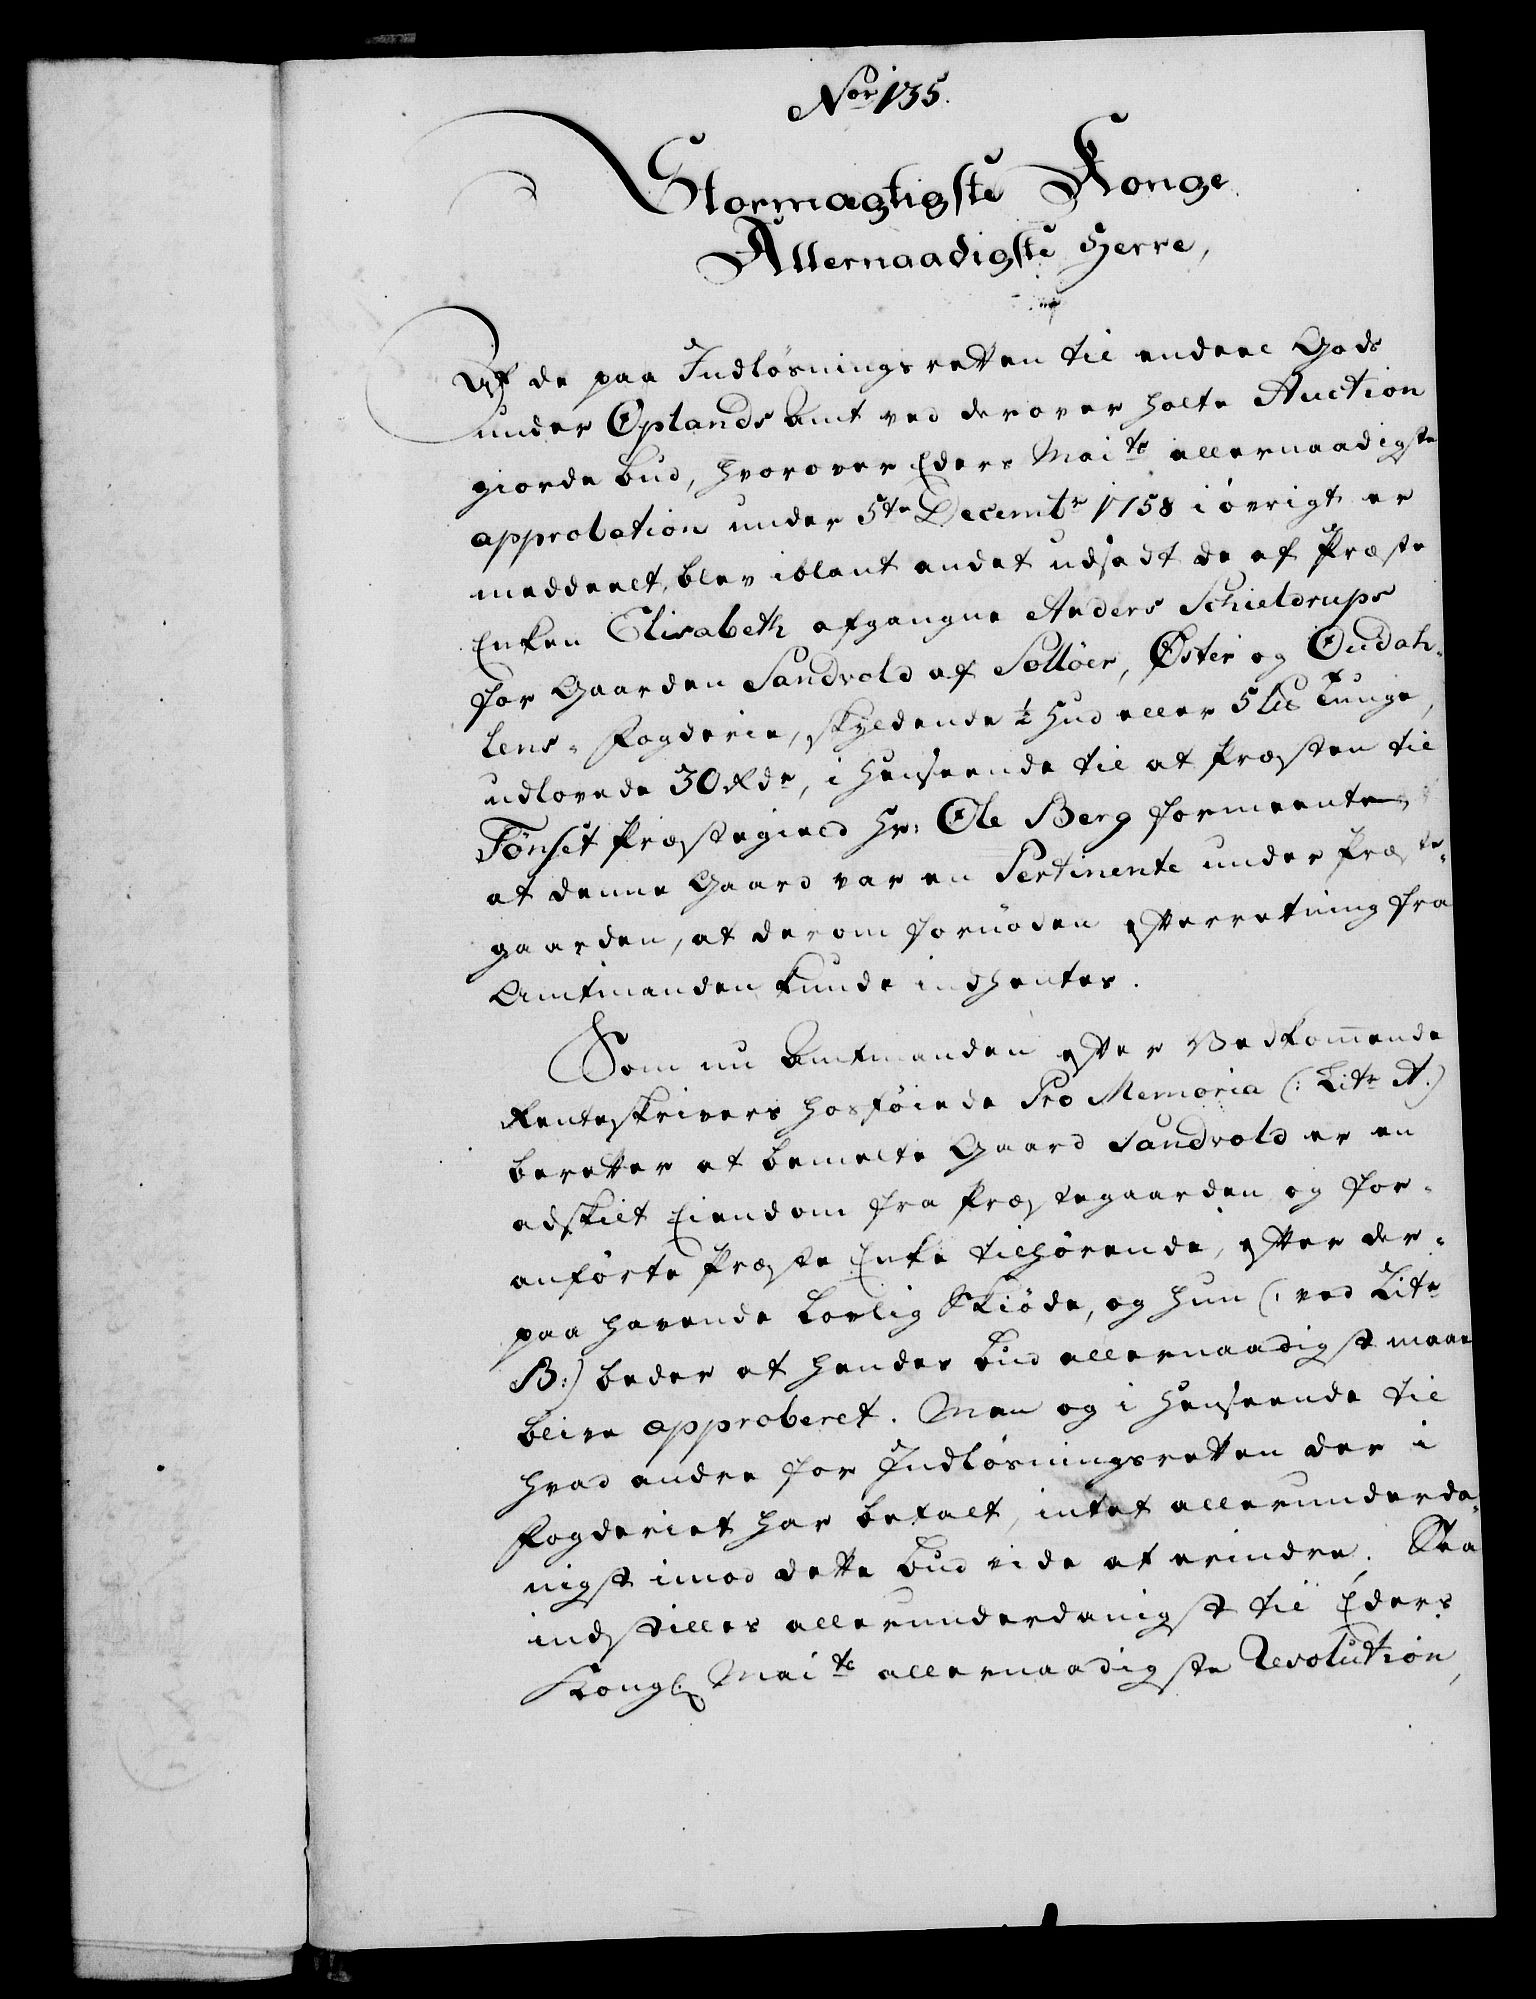 No: 135.
Stormægtigste Konge
Allernaadigste Herre,
Af de paa Indløsningsretten til endeel Gods
under Oplands Amt ved derover holte Auction
giorde bud, hvorover Eders Maits allernaadigste
approbation under 5te Decembr 1758 i øvrigt er
meddeelt, blev iblant andet udsadt de af Præste
Enken Elisabeth afgangne Anders Schieldrups
for Gaarden Sandvold af Solløer, Øster og Oudah-
lens-Fogderie, skyldende ½ Hud eller 5 Lis Tunge,
udlovede 30 Rdr, i henseende til at Præsten til
Tønset Præstegield Hr: Ole Berg formeente,
at denne Gaard var en Pertinente under Præste-
gaarden, at derom fornøden efterretning fra
Amtmanden kunde indhentes.
Som nu Amtmanden efter Vedkommende
Renteskrivers hosføiede Pro Memoria (: Litr A:)
beretter at bemelte Gaard Sandvold er en
adskilt Eiendom fra Præstegaarden og for-
anførte Præste Enke tilhørende, efter der-
paa havende lovlig Skiøde, og hun (: ved Litr
B:) beder at hendes bud allernaadigst maae
blive approberet. Men og i henseende til
hvad andre for Indløsningsretten der i
Fogderiet har betalt, intet allerunderda-
nigst imod dette bud vide at erindre. Saa
indstilles allerunderdanigst til Eders
Kongl Maits allernaadigste Resolution,